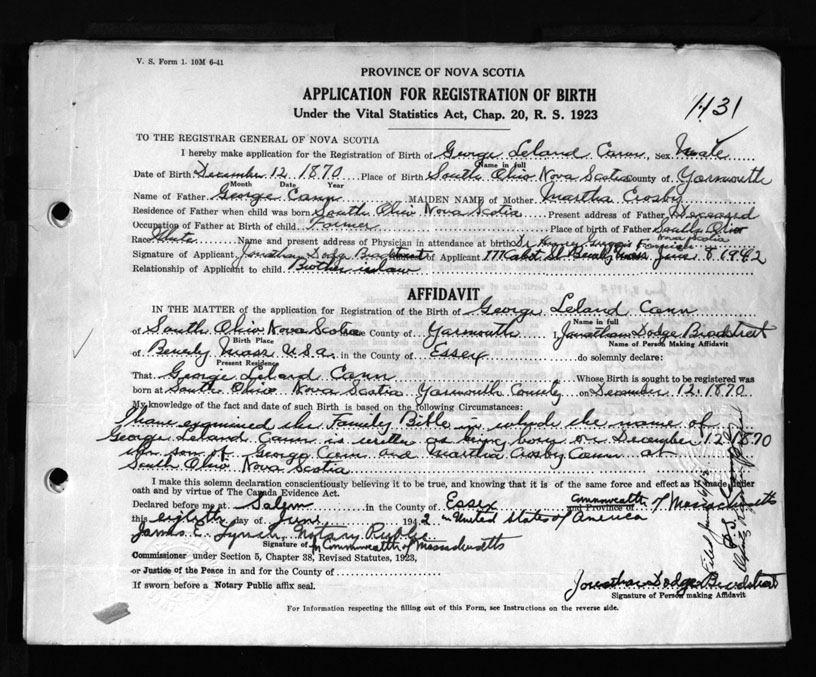 V. S. Form 1. 10M 6-41
PROVINCE OF NOVA SCOTIA
APPLICATION FOR REGISTRATION OF BIRTH
Under the Vital Statistics Act, Chap. 20, R. S. 1923
1131
TO THE REGISTRAR GENERAL OF NOVA SCOTIA
I hereby make application for the Registration of Birth of George Leland Cann, Sex Male
Name in full
Date of Birth December 12 1870 Place of Birth South Ohio Nova Scotia County of Yarmouth
Month Date Year
Name of Father George Cann MAIDEN NAME of Mother Martha Crosby
Residence of Father when child was born South Ohio Nova Scotia Present address of Father Deceased
Occupation of Father at Birth of child Farmer Place of Birth of Father South Ohio
Nova Scotia
Race White Name and present address of Physician in attendance at birth Dr Henry
Signature of Applicant Jonathan Dodge Bradstreet of Applicant Cabot St Beverly Mass June 8 1942
Relationship of Applicant to child Brother in law
AFFIDAVIT
IN THE MATTER of the application for Registration of the Birth of George Leland Cann
Name in full
of South Ohio Nova Scotia in the County of Yarmouth I, Jonathan Dodge Bradstreet
Birth Place Name of Person Making Affidavit
of Beverly Mass U.S.A. in the County of Essex do solemnly declare:
Present Residence
That George Leland Cann Whose Birth is sought to be registered was
born at South Ohio Nova Scotia Yarmouth County on December 12. 1870
My knowledge of the fact and date of such Birth is based on the following Circumstances:
I have examined the Family Bible in which the name of
George Leland Cann is written as being born on December 12 1870
son of George Cann and Martha Crosby Cann at
South Ohio Nova Scotia
I make this solemn declaration conscientiously believing it to be true, and knowing that it is of the same force and effect as if made under
oath and by virtue of The Canada Evidence Act.
Declared before me at Salem in the County of Essex and Province of Commonwealth of Massachusetts
this eighth day of June 1942 in United States of America
James E. Lynch, Notary Public
Signature of for Commonwealth of Massachusetts
Commissioner under Section 5, Chapter 38, Revised Statutes, 1923,
or Justice of the Peace in and for the County of
If sworn before a Notary Public affix seal.
Jonathan Dodge Bradstreet
Signature of Person making Affidavit
For Information respecting the filling out of this Form, see Instructions on the reverse side.
Filed June